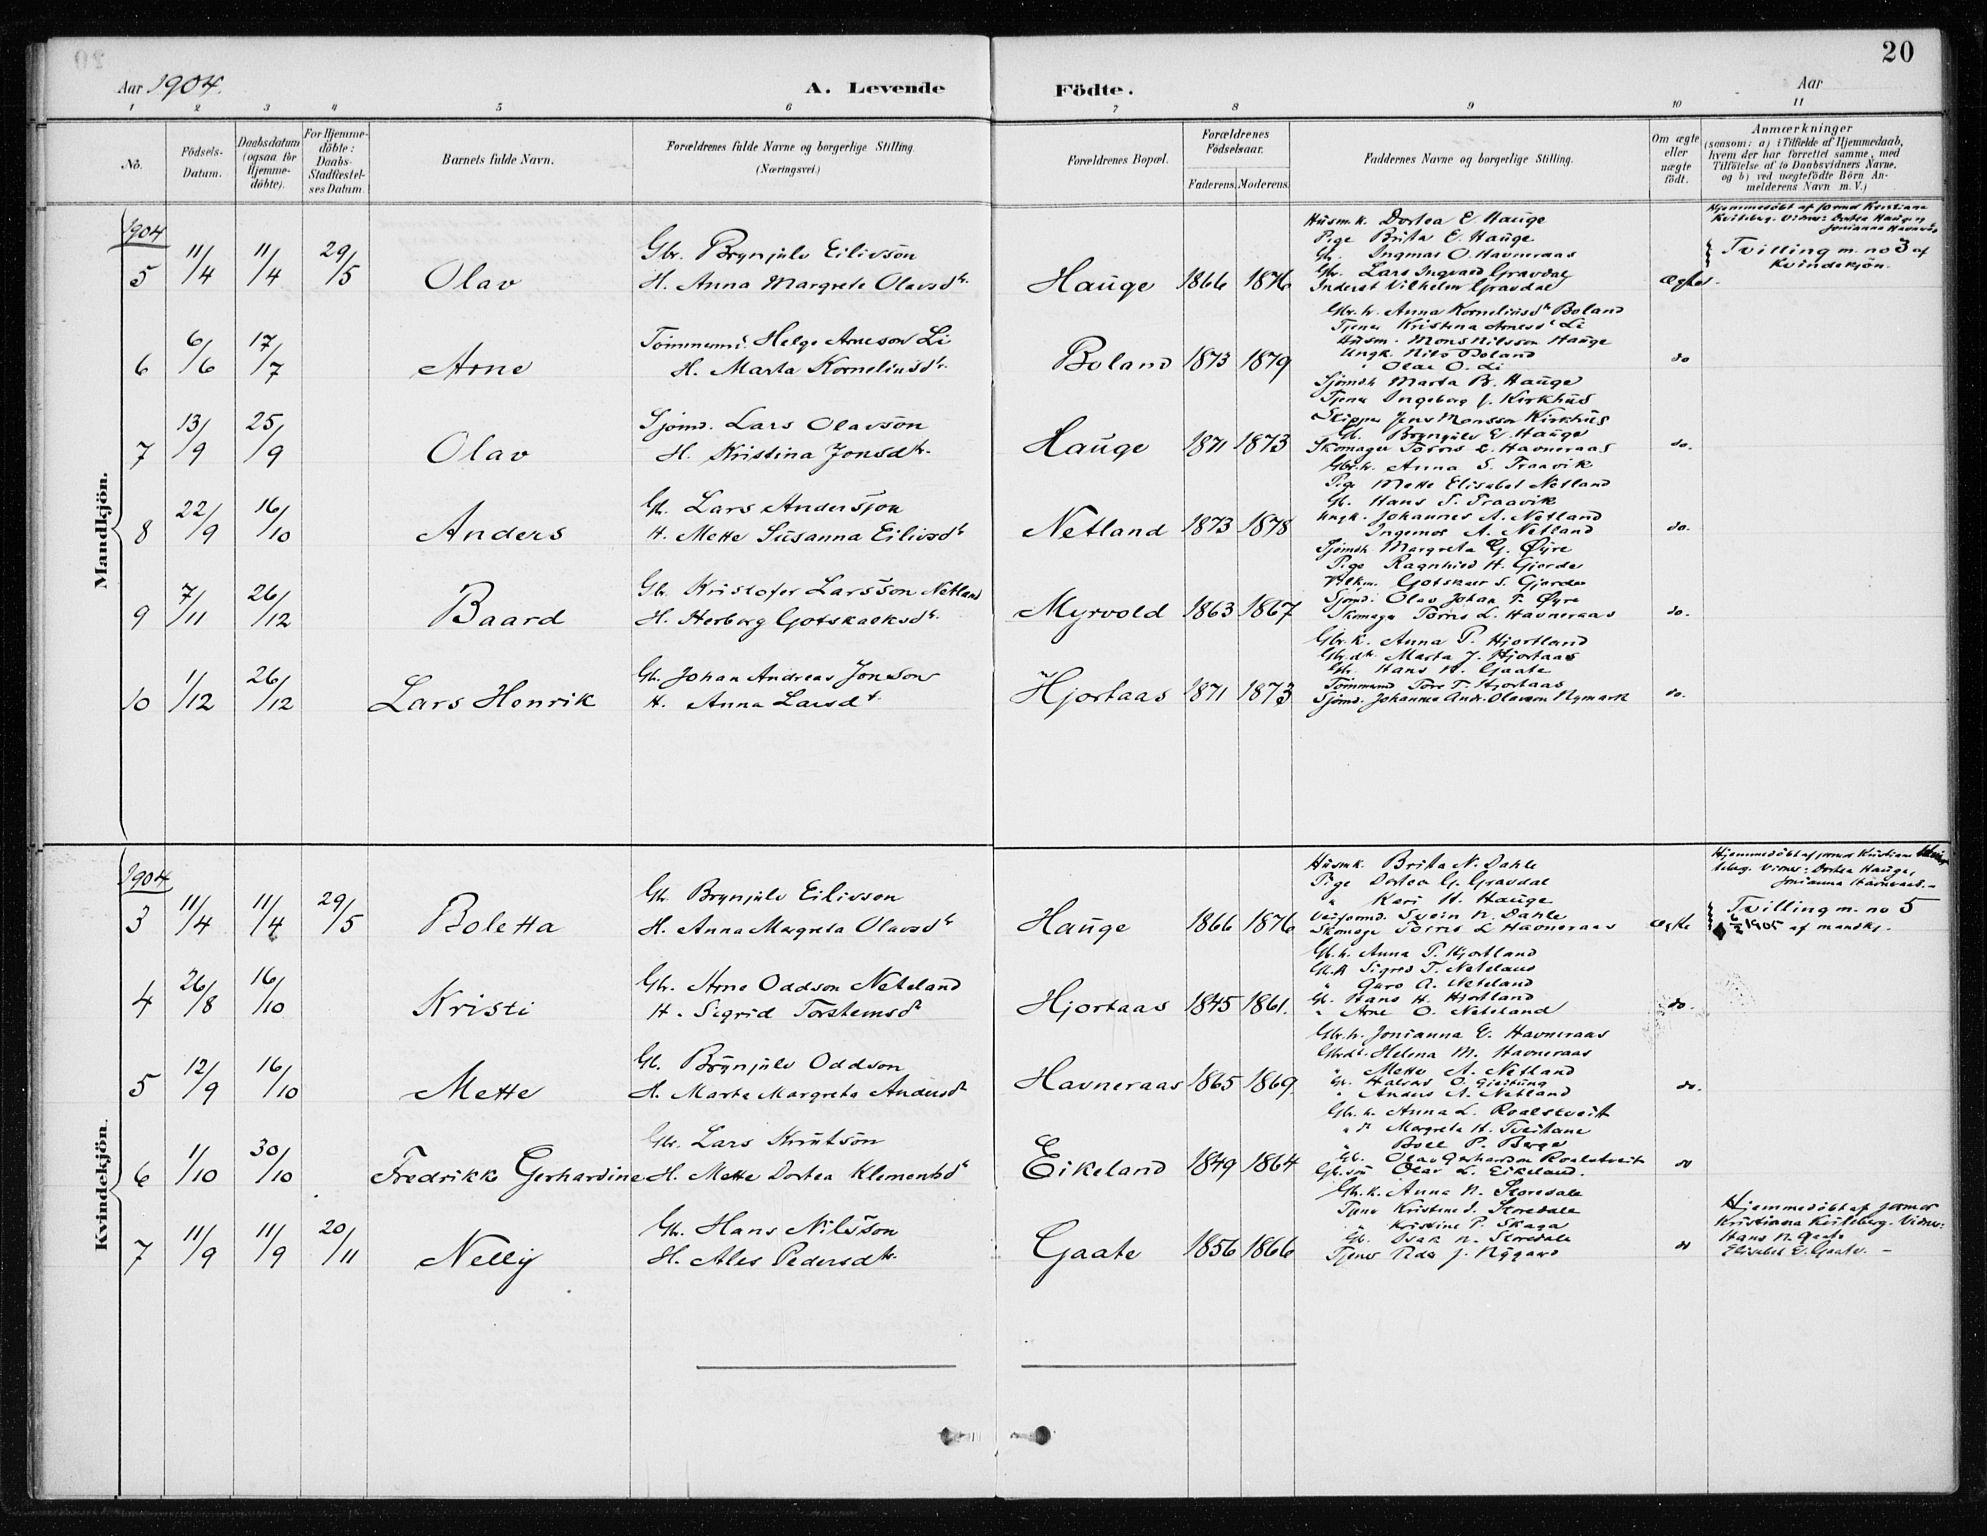 20
Aar 1904.
A. Levende Födte.
Aar
1 2 3 4 5 6 7 8 9 10 11
No.
Födsels-Datum.
Daabsdatum (ogsaa for Hjemme-döbte).
For Hjemme-döbte: Daabs-Stadfæstel-ses Datum.
Barnets fulde Navn.
Forældrenes fulde Navne og borgerlige Stilling. (Næringsvei.)
Forældrenes Bopæl.
Forældrenes Födselsaar.
Faderens. Moderens.
Faddernes Navne og borgerlige Stilling.
Om ægte eller uægte födt.
Anmærkninger
(saasom: a) i Tilfælde af Hjemmedaab,
hvem der har forrettet samme, med
Tilföielse af to Daabsvidners Navne,
og b) ved uægtefödte Börn An-
melderens Navn m. V.)
Mandkjön.
1904
5 11/4 11/4 29/5 Olav
Gbr. Brynjulv Eilivson
H. Anna Margreta Olavsdtr.
Hauge 1866 1876
Husm.k. Dortea E. Hauge
Pige Brita E. Hauge
Gbr. Ingmar O. Havneraas
Gbr. Lars Ingvald Gravdal
Inderst Vilhelm Gravdal
ægte.
Hjemmedöbt af jormor Kristiana
Kviteberg. Vidner: Dortea Hauge og
Jonianna Havneraas
Tvilling m. no 3 af
Kvindekjön.
6 6/6 17/7 Arne
Tömmermd. Helge Arneson Li
H. Marta Korneliusdtr.
Boland 1873 1879
Gbr.k. Anna Korneliusdtr Boland
Tjener Kristina Arnesdtr Li
Husm. Mons Nilsson Hauge
Ungk. Nils Boland
" Olai O. Li
do
7 13/9 25/9 Olav
Sjömd. Lars Olavson
H. Kristina Jonsdtr.
Hauge 1871 1873
Sjömdk Marta B. Hauge
Tjener Ingeborg J. Kirkhus
Skipper Jens Monsson Kirkhus
Gb. Brynjulv E. Hauge
Skomager Torris L. Havneraas
do.
8 22/9 16/10 Anders
Gbr. Lars Andersson
H. Mette Susanna Eilivsdtr
Netland 1873 1878
Gbr.k. Anna S. Traavik
Pige Mette Elisabet Netland
Gb. Hans S. Traavik
Ungk. Johannes A. Netland
" Ingemar A. Netland
do.
9 7/11 26/12 Baard
Gbr. Kristofer Larsson Netland
H. Herborg Gotskalksdtr.
Myrvold 1863 1867
Sjömdk Margreta G. Øyre
Pige Ragnhild H. Gjerde
Gotskalk S. Gjerde
Sjömd. Olav Johan T. Øyre
Skomager Torris L. Havneraas
do.
10 1/12 26/12 Lars Henrik
Gb. Johan Andreas Jonson
H. Anna Larsdtr
Hjortaas 1871 1873
Gbr.k. Anna P. Hjortland
Gbr.dtr. Marta J. Hjortaas
Gbr. Hans N. Gaate
Tömmermd Tore T. Hjortaas
Sjömd. Johannes Andr. Olavson Nymark
do.
Kvindekjön.
1904
3 11/4 11/4 29/5 Boletta
Gbr. Brynjulv Eilivson
H. Anna Margreta Olavsdtr
Hauge 1866 1876
Husmk. Brita N. Dahle
Pige Dortea G. Gravdal
" Kari H. Hauge
Veiformd. Svein N. Dahle
Skomager Torris L Havneraas
ægte
Hjemmedöbt af jormor Kristiana
Vidner: Dortea Hauge,
Jonianna Havneraas. -
Tvilling m. no 5
6/2 1905 af mandkj.
4 26/8 16/10 Kristi
Gbr. Arne Oddson Neteland
H. Sigrid Torsteinsdtr
Hjortaas 1845 1861.
Gb.k. Anna P. Hjortland
Gb.k Sigrid T. Neteland
" Guro A. Neteland
Gb. Hans H. Hjortland
" Arne O. Neteland
do.
5 12/9 16/10 Mette
Gb. Brynjulv Oddson
H. Marta Margreta Andersdtr
Havneraas 1865 1869.
Gbr.k. Jonianna E. Havneraas
Gbrdtr. Helena M. Havneraas
" Mette A. Netland
Gb. Halvor O. Gjeitung
" Anders A. Netland
do.
6 1/10 30/10 Fredrikke Gerhardine
Gbr. Lars Knutson
H. Mette Dortea Klementsdtr
Eikeland 1849 1864
Gbr. k. Anna L. Roalstveit
" dtr Margreta H. Tveitane
" Boel P. Berge
Gb. Olav Gerhardson Roalstveit
Gb.sön Olav L. Eikeland.
do
7 11/9 11/9 20/11 Nelly
Gbr. Hans Nilsson
H. Ales Pedersdtr.
Gaate 1856 1866
Gbr.k. Anna N. Storedale
Tjener Kristine S. Storedale
" Kristine P. Skaga
Gb. Isak N. Storedale
Tjener Peder J. Nygard
do
Hjemmedöbt af jormor
Kristiana Kviteberg. Vidner:
Hans N. Gaate
Elisabet E. Gaate. -